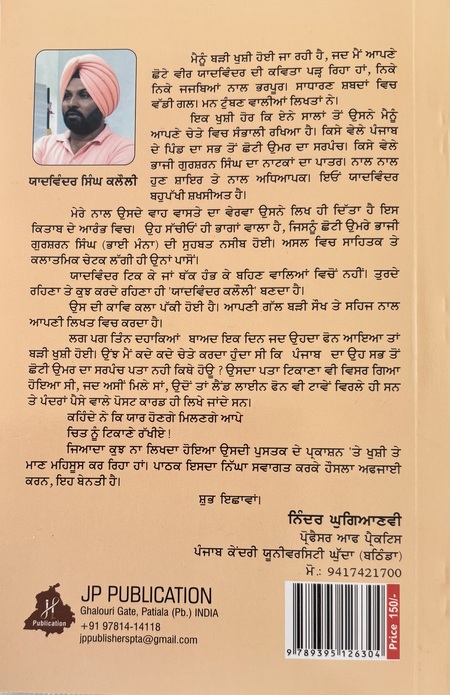 ਮੈਨੂੰ ਬੜੀ ਖੁਸ਼ੀ ਹੋਈ ਜਾ ਰਹੀ ਹੈ, ਜਦ ਮੈਂ ਆਪਣੇ
ਛੋਟੇ ਵੀਰ ਯਾਦਵਿੰਦਰ ਦੀ ਕਵਿਤਾ ਪੜ੍ਹ ਰਿਹਾ ਹਾਂ, ਨਿਕੇ
ਨਿਕੇ ਜਜਬਿਆਂ ਨਾਲ ਭਰਪੂਰ। ਸਾਧਾਰਣ ਸ਼ਬਦਾਂ ਵਿਚ
ਵੱਡੀ ਗਲ। ਮਨ ਟੁੰਬਣ ਵਾਲੀਆਂ ਲਿਖਤਾਂ ਨੇ।
ਇਕ ਖੁਸ਼ੀ ਹੋਰ ਕਿ ਏਨੇ ਸਾਲਾਂ ਤੋਂ ਉਸਨੇ ਮੈਨੂੰ
ਆਪਣੇ ਚੇਤੇ ਵਿਚ ਸੰਭਾਲੀ ਰਖਿਆ ਹੈ। ਕਿਸੇ ਵੇਲੇ ਪੰਜਾਬ
ਦੇ ਪਿੰਡ ਦਾ ਸਭ ਤੋਂ ਛੋਟੀ ਉਮਰ ਦਾ ਸਰਪੰਚ। ਕਿਸੇ ਵੇਲੇ
ਭਾਜੀ ਗੁਰਸ਼ਰਨ ਸਿੰਘ ਦਾ ਨਾਟਕਾਂ ਦਾ ਪਾਤਰ। ਨਾਲ ਨਾਲ
ਹੁਣ ਸ਼ਾਇਰ ਤੇ ਨਾਲ ਅਧਿਆਪਕ। ਇਓਂ ਯਾਦਵਿੰਦਰ
ਬਹੁਪੱਖੀ ਸ਼ਖਸੀਅਤ ਹੈ।
ਯਾਦਵਿੰਦਰ ਸਿੰਘ ਕਲੌਲੀ
ਮੇਰੇ ਨਾਲ ਉਸਦੇ ਵਾਹ ਵਾਸਤੇ ਦਾ ਵੇਰਵਾ ਉਸਨੇ ਲਿਖ ਹੀ ਦਿੱਤਾ ਹੈ ਇਸ
ਕਿਤਾਬ ਦੇ ਆਰੰਭ ਵਿਚ। ਉਹ ਸੱਚੀਓਂ ਹੀ ਭਾਗਾਂ ਵਾਲਾ ਹੈ, ਜਿਸਨੂੰ ਛੋਟੀ ਉਮਰੇ ਭਾਜੀ
ਗੁਰਸ਼ਰਨ ਸਿੰਘ (ਭਾਈ ਮੰਨਾ) ਦੀ ਸੁਹਬਤ ਨਸੀਬ ਹੋਈ। ਅਸਲ ਵਿਚ ਸਾਹਿਤਕ ਤੇ
ਕਲਾਤਮਿਕ ਚੇਟਕ ਲੱਗੀ ਹੀ ਉਨਾਂ ਪਾਸੋਂ।
ਯਾਦਵਿੰਦਰ ਟਿਕ ਕੇ ਜਾਂ ਥੱਕ ਹੰਭ ਕੇ ਬਹਿਣ ਵਾਲਿਆਂ ਵਿਚੋਂ ਨਹੀਂ। ਤੁਰਦੇ
ਰਹਿਣਾ ਤੇ ਕੁਝ ਕਰਦੇ ਰਹਿਣਾ ਹੀ 'ਯਾਦਵਿੰਦਰ ਕਲੌਲੀ' ਬਣਦਾ ਹੈ।
ਉਸ ਦੀ ਕਾਵਿ ਕਲਾ ਪੱਕੀ ਹੋਈ ਹੈ। ਆਪਣੀ ਗੱਲ ਬੜੀ ਸੌਖ ਤੇ ਸਹਿਜ ਨਾਲ
ਆਪਣੀ ਲਿਖਤ ਵਿਚ ਕਰਦਾ ਹੈ।
ਲਗ ਪਗ ਤਿੰਨ ਦਹਾਕਿਆਂ ਬਾਅਦ ਇਕ ਦਿਨ ਜਦ ਉਹਦਾ ਫੋਨ ਆਇਆ ਤਾਂ
ਬੜੀ ਖੁਸ਼ੀ ਹੋਈ। ਉਂਝ ਮੈਂ ਕਦੇ ਕਦੇ ਚੇਤੇ ਕਰਦਾ ਹੁੰਦਾ ਸੀ ਕਿ ਪੰਜਾਬ ਦਾ ਉਹ ਸਭ ਤੋਂ
ਛੋਟੀ ਉਮਰ ਦਾ ਸਰਪੰਚ ਪਤਾ ਨਹੀ ਕਿਥੇ ਹੋਊ ? ਉਸਦਾ ਪਤਾ ਟਿਕਾਣਾ ਵੀ ਵਿਸਰ ਗਿਆ
ਹੋਇਆ ਸੀ, ਜਦ ਅਸੀਂ ਮਿਲੇ ਸਾਂ, ਉਦੋਂ ਤਾਂ ਲੈਂਡ ਲਾਈਨ ਫੋਨ ਵੀ ਟਾਵੇਂ ਵਿਰਲੇ ਹੀ ਸਨ
ਤੇ ਪੰਦਰਾਂ ਪੈਸੇ ਵਾਲੇ ਪੋਸਟ ਕਾਰਡ ਹੀ ਲਿਖੇ ਜਾਂਦੇ ਸਨ।
ਕਹਿੰਦੇ ਨੇ ਕਿ ਯਾਰ ਹੋਣਗੇ ਮਿਲਣਗੇ ਆਪੇ
ਚਿਤ ਨੂੰ ਟਿਕਾਣੇ ਰੱਖੀਏ!
ਜਿਆਦਾ ਕੁਝ ਨਾ ਲਿਖਦਾ ਹੋਇਆ ਉਸਦੀ ਪੁਸਤਕ ਦੇ ਪ੍ਰਕਾਸ਼ਨ 'ਤੇ ਖੁਸ਼ੀ ਤੇ
ਮਾਣ ਮਹਿਸੂਸ ਕਰ ਰਿਹਾ ਹਾਂ। ਪਾਠਕ ਇਸਦਾ ਨਿੱਘਾ ਸਵਾਗਤ ਕਰਕੇ ਹੌਸਲਾ ਅਫਜਾਈ
ਕਰਨ, ਇਹ ਬੇਨਤੀ ਹੈ।
ਸ਼ੁਭ ਇਛਾਵਾਂ।
ਨਿੰਦਰ ਘੁਗਿਆਣਵੀ
ਪ੍ਰੋਫੈਸਰ ਆਫ ਪ੍ਰੈਕਟਿਸ
ਪੰਜਾਬ ਕੇਂਦਰੀ ਯੂਨੀਵਰਸਿਟੀ ਘੁੱਦਾ (ਬਠਿੰਡਾ)
ਮੋ.: 9417421700
Publication
JP PUBLICATION
Ghalouri Gate, Patiala (Pb.) INDIA
+91 97814-14118
jppublisherspta@gmail.com
9 789395 126304
Price 150/-